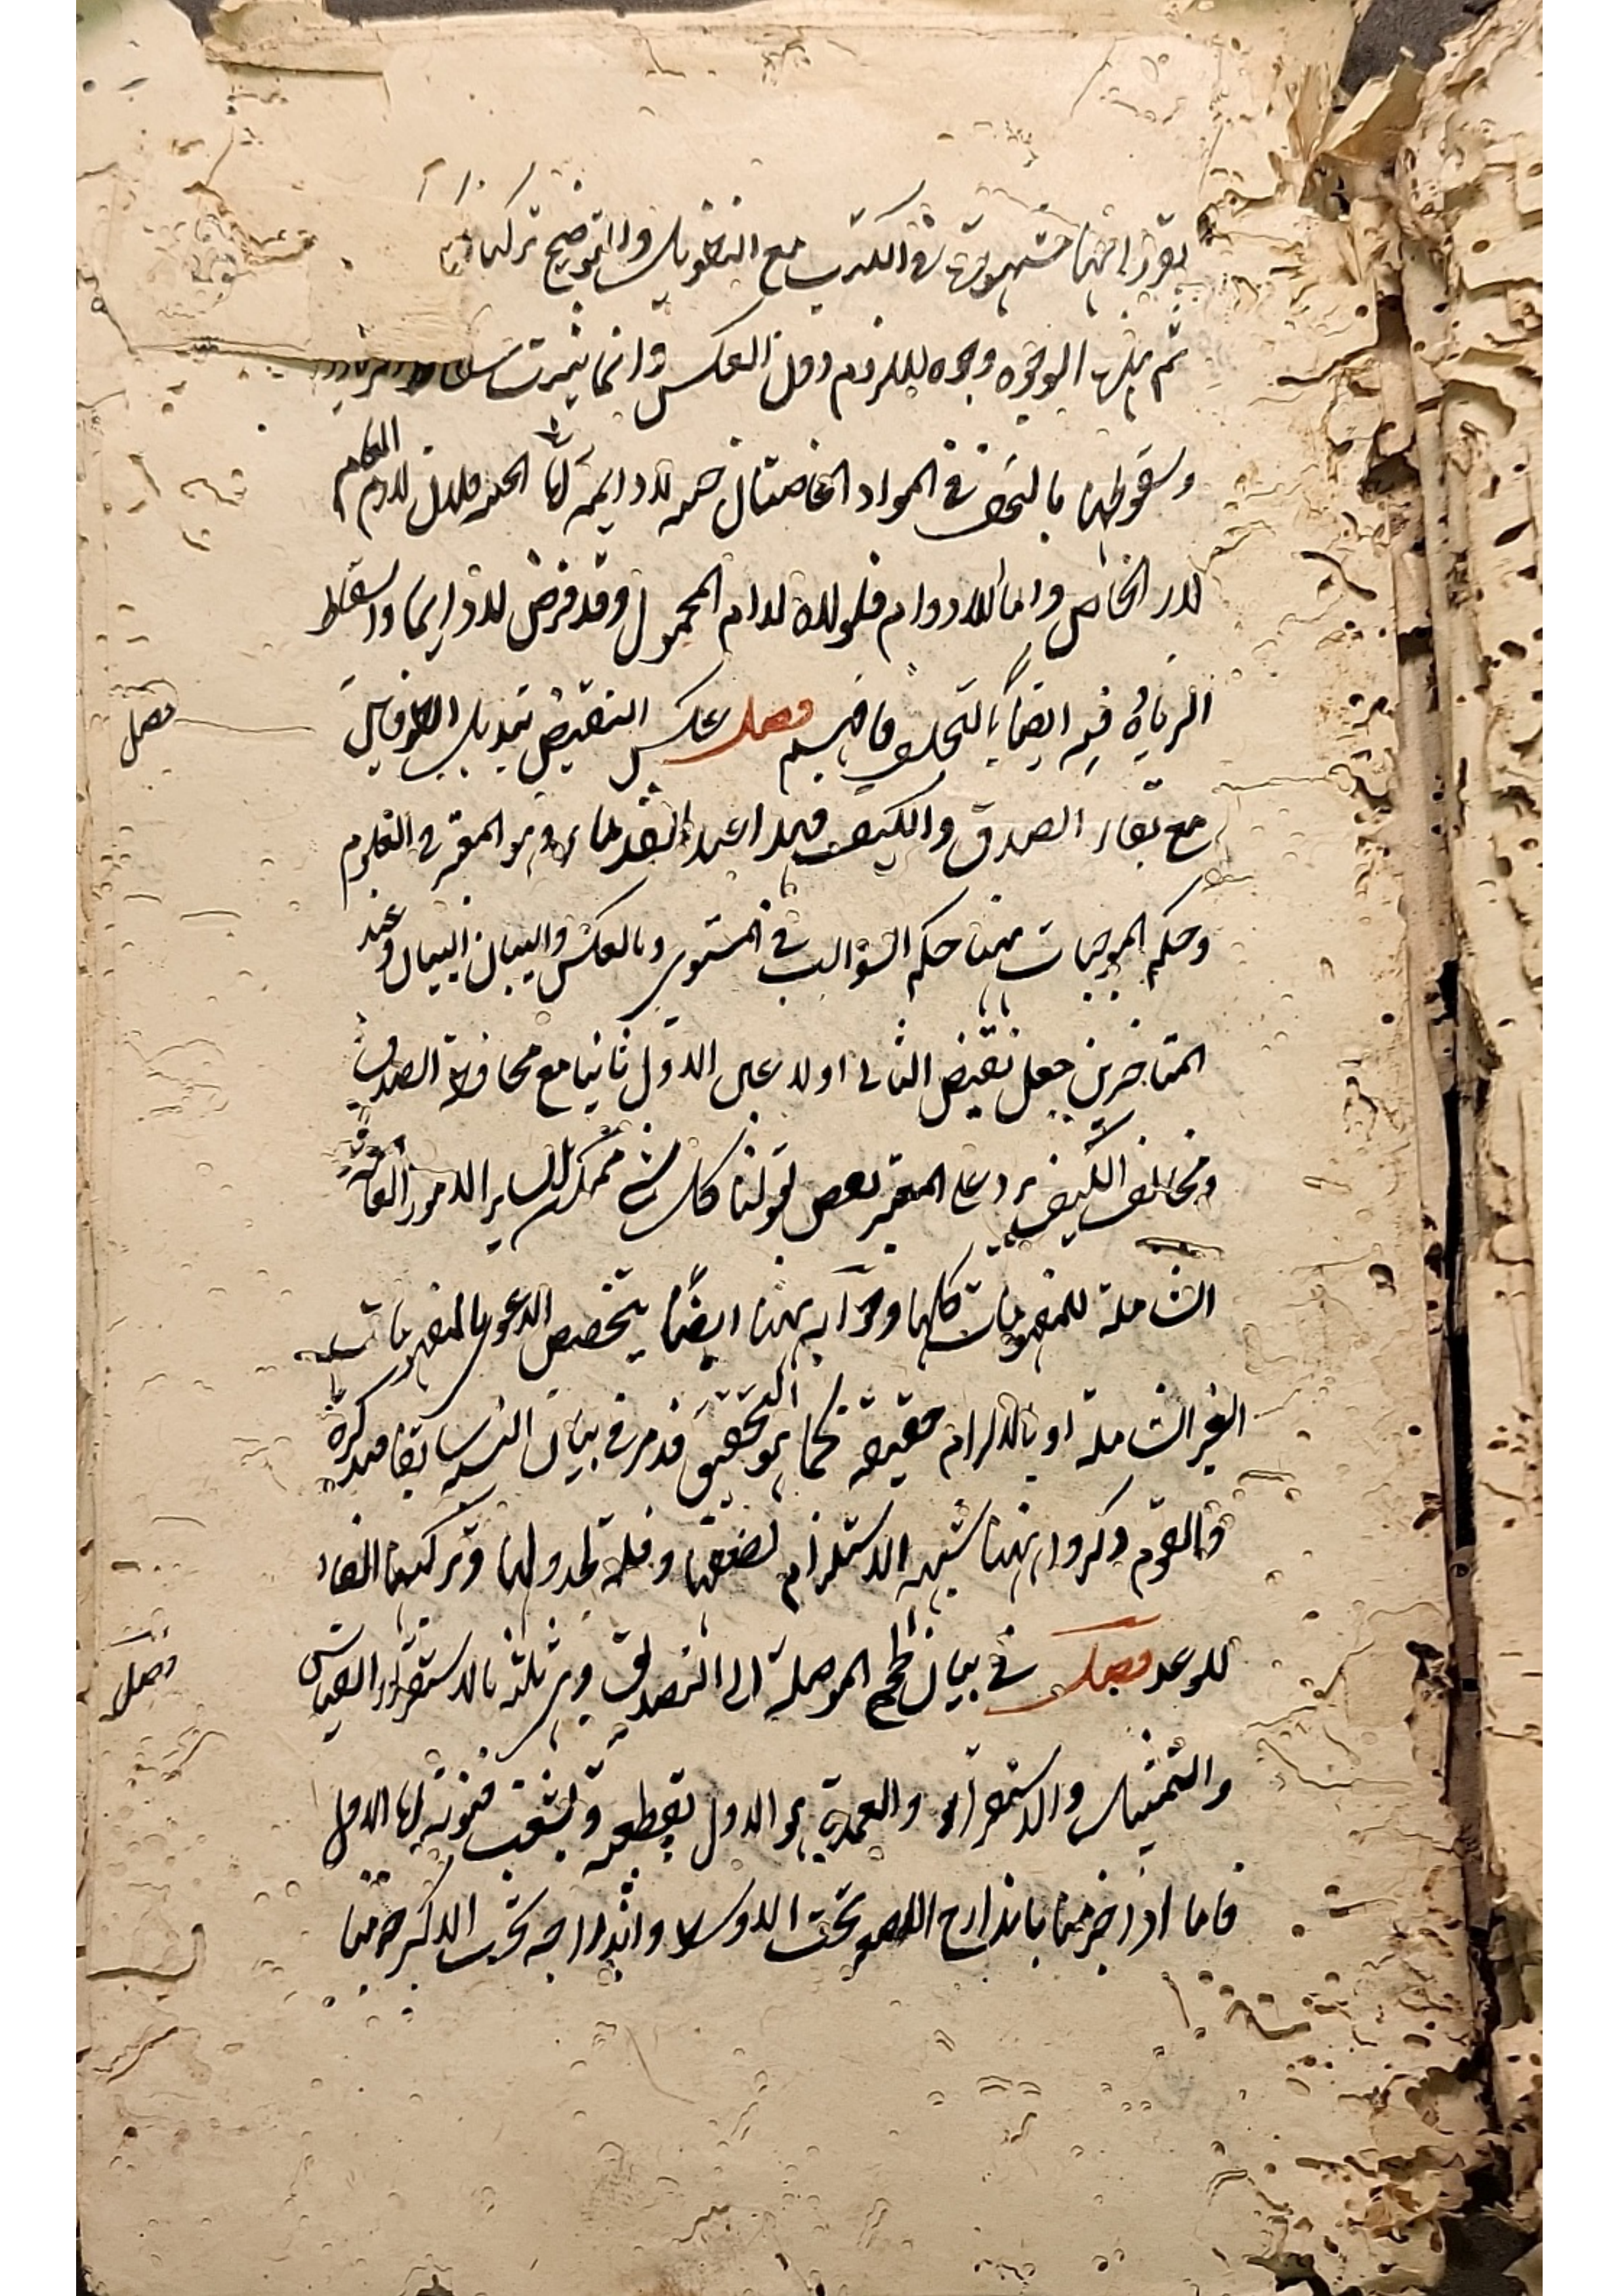 مشهورة في الكتب مع التطويل والتوضيح تركها
ثم بهذا الوجوه وجوه للزوم دون العكس وانما يثبت
وسقوطها بالتخلف في المواد الخاصتان لادايمة اما الحينية فلان لازم العام
لازم الخاص واما اللادوام فلولاه لدام المحمول وقد فرض لادايما واسقاط
الزيادة فيه ايضا بالتخلف فافهم فصل عكس النقيض تبديل الطرفين
فصل
مع بقاء الصدق والكيف فهذا عند القدماء وهو المعتبر في العلوم
وحكم الموجبات ههنا حكم السوالب في المستوي وبالعكس والبيان البيان وعند
المتاخرين جعل نقيض الثاني اولا وعين الاول ثانيا مع محافظة الصدق
ومخالفة الكيف يرد على المعتبر نقض قولنا كل شئ ممكن لساير الامور العامة
الشاملة للمفهومات كلها وجوابه ههنا ايضا بتخصيص الدعوى بالمفهومات
الغير الشاملة او بالالزام حقيقة كما هو التحقيق قد مر في بيان النسب سابقا فتذكره
والقوم ذكروا ههنا شبهة الاستلزام لضعفها وقلة جدولها وتركيبها
للوعد فصل في بيان الحجج الموصلة الى التصديق وهي ثلثة بالاستقراء القياس
فصل
والتمثيل والاستقراء والعمدة هو الاول لقطعه وتشعب فنونه اما الاول
فاما اذا جزمنا باندراج الاصغر تحت الاوسط واندراجه تحت الاكبر جزمنا